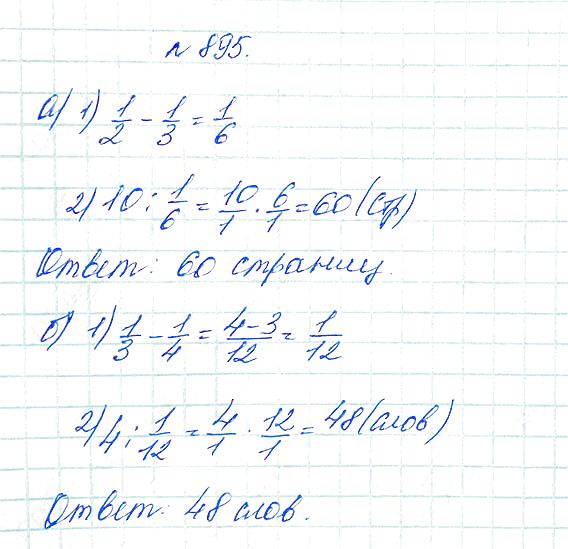 № 895.
а) 1) 1/2 - 1/3 = 1/6
2) 10 : 1/6 = 10/1 · 6/1 = 60 (стр)
Ответ: 60 страниц.
б) 1) 1/3 - 1/4 = 4-3/12 = 1/12
2) 4 : 1/12 = 4/1 · 12/1 = 48 (слов)
Ответ: 48 слов.